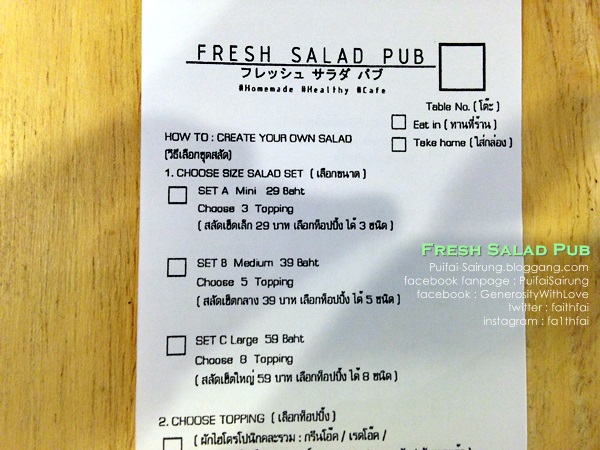 FRESH SALAD PUB
フレッシュ サラダ パブ
#Homemade #Healthy #Cafe
Table No. ( โต๊ะ )
Eat in ( ทานที่ร้าน )
Take home ( ใส่กล่อง )
HOW TO : CREATE YOUR OWN SALAD
(วิธีเลือกชุดสลัด)
1. CHOOSE SIZE SALAD SET ( เลือกขนาด )
SET A Mini 29 Baht
Choose 3 Topping
( สลัดเซ็ตเล็ก 29 บาท เลือกท็อปปิ้ง ได้ 3 ชนิด )
SET B Medium 39 Baht
Choose 5 Topping
( สลัดเซ็ตกลาง 39 บาท เลือกท็อปปิ้ง ได้ 5 ชนิด )
SET C Large 59 Baht
Choose 8 Topping
( สลัดเซ็ตใหญ่ 59 บาท เลือกท็อปปิ้ง ได้ 8 ชนิด )
2. CHOOSE TOPPING ( เลือกท็อปปิ้ง )
( ผักไฮโดรโปนิกคละรวม : กรีนโอ๊ค / เรดโอ๊ค /
FRESH SALAD PUB
Puifai-Sairung.bloggang.com
facebook fanpage : PuifaiSairung
facebook : GenerosityWithLove
twitter : faithfai
instagram : fa1thfai